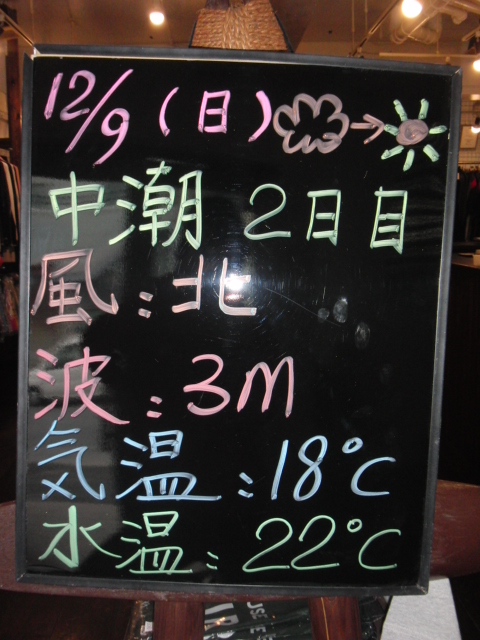 12/9(日)
中潮 2日目
風:北
波:3m
気温:18℃
水温:22℃